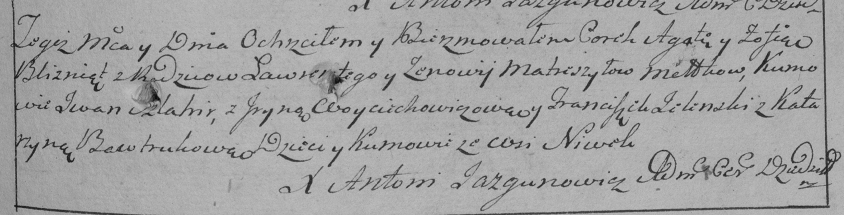 X Antoni Jazgunowicz Adm C Dzie
Tegiż Mca y Dnia Ochrzciłem y Bierzmowałem Corek Agatę y Zofię
Blizniąt z Rodzicow Lawrentego y Zenowij Matreszyłow Mełtkow, Kumo
wie Jwan z Jryną Woyciechowiczową y Franciszek Zelenski z Kata
rzyną Bawtrukową Dzieci y Kumowie ze wsi Niwek
X Antoni Jazgunowicz Adm Cer